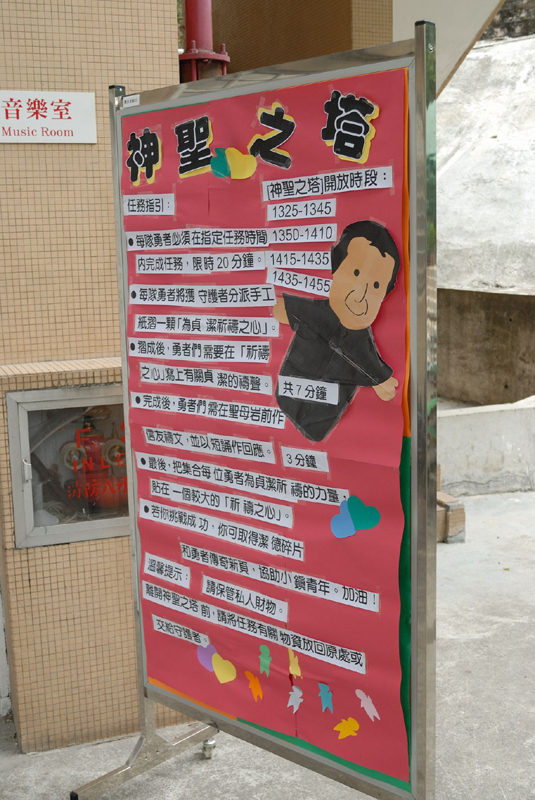 音樂室
Music Room
神聖之塔
任務指引：
[神聖之塔]開放時段：
1325-1345
1350-1410
1415-1435
1435-1455
●每隊勇者必須在指定任務時間
內完成任務，限時20分鐘。
●每隊勇者將獲 守護者分派手工
紙摺一顆「為貞 潔祈禱之心」。
●摺成後，勇者們 需要在「祈禱
之心」寫上有關貞 潔的禱聲。
共7分鐘
●完成後，勇者們 需在聖母岩前作
信友禱文，並以 短誦作回應。
3分鐘
●最後，把集合每 位勇者為貞潔祈 禱的力量，
貼在 一個較大的「祈 禱之心」。
●若你挑戰成 功，你可取得潔 德碎片
和勇者傳奇新頁，協助小 鎮青年。加油！
溫馨提示：
請保管私人財物。
離開神聖之塔 前，請將任務有關 物資放回原處或
交給守護者。